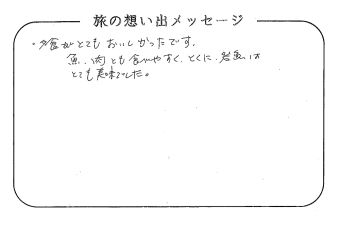 旅の想い出メッセージ
・夕食がとてもおいしかったです。
魚、肉とも食べやすく、とくに、岩魚は
とても美味でした。